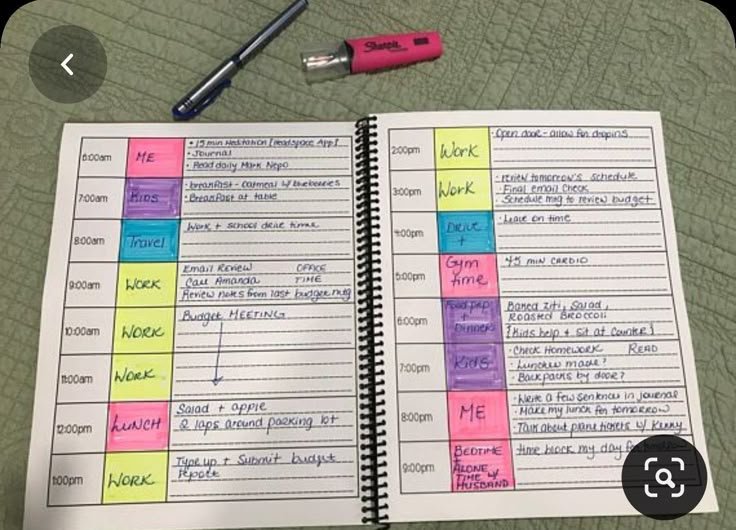 Sharpie
6:00am
ME
• 15 min Meditation [Headspace App]
• Journal
• Read daily Mark Nepo
7:00am
KIDS
• breakfast - oatmeal w/ blueberries
• Breakfast at table
8:00am
Travel
Work + school drive time
9:00am
WORK
Email Review OFFICE
Call Amanda TIME
Review notes from last budget mtg
10:00am
WORK
Budget MEETING
11:00am
WORK
12:00pm
LUNCH
Salad + apple
2 laps around parking lot
1:00pm
WORK
Type up + Submit budget
report
2:00pm
Work
• Open door - allow for dropins
3:00pm
Work
• review tomorrow's schedule
• Final email check
• Schedule mtg to review budget
4:00pm
Drive
+
• Leave on time
5:00pm
Gym
time
45 min CARDIO
6:00pm
Food prep
+
Dinner
Baked ziti, Salad,
Roasted Broccoli
[Kids help + sit at counter]
7:00pm
Kids
• Check Homework READ
• Lunches made?
• Backpacks by door?
8:00pm
ME
• Write a few sentences in journal
• Make my lunch for tomorrow
• Talk about plane tickets w/ Kenny
9:00pm
BEDTIME
+
ALONE
TIME W/
HUSBAND
time block my day for